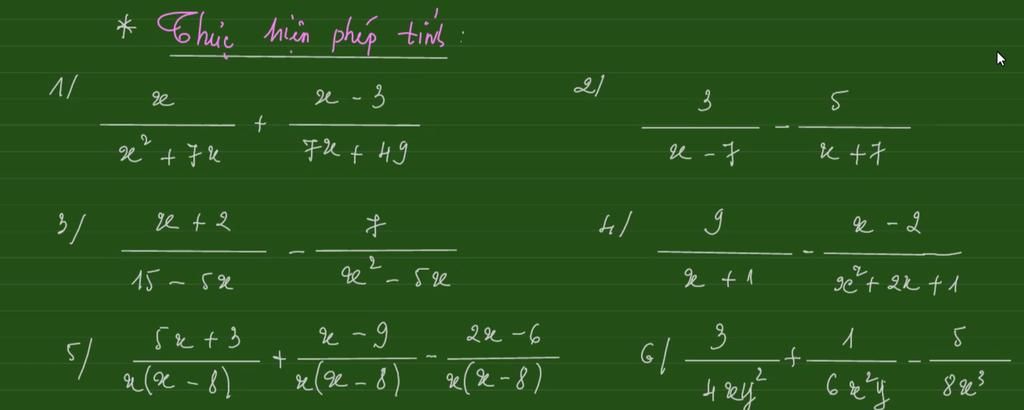 * Thực hiện phép tính:
1/ x/(x² + 7x) + (x - 3)/(7x + 49)
2/ 3/(x - 7) - 5/(x + 7)
3/ (x + 2)/(15 - 5x) - 7/(x² - 5x)
4/ 9/(x + 1) - (x - 2)/(x² + 2x + 1)
5/ (5x + 3)/(x(x - 8)) + (x - 9)/(x(x - 8)) - (2x - 6)/(x(x - 8))
6/ 3/(4xy²) + 1/(6x²y) - 5/(8x³)